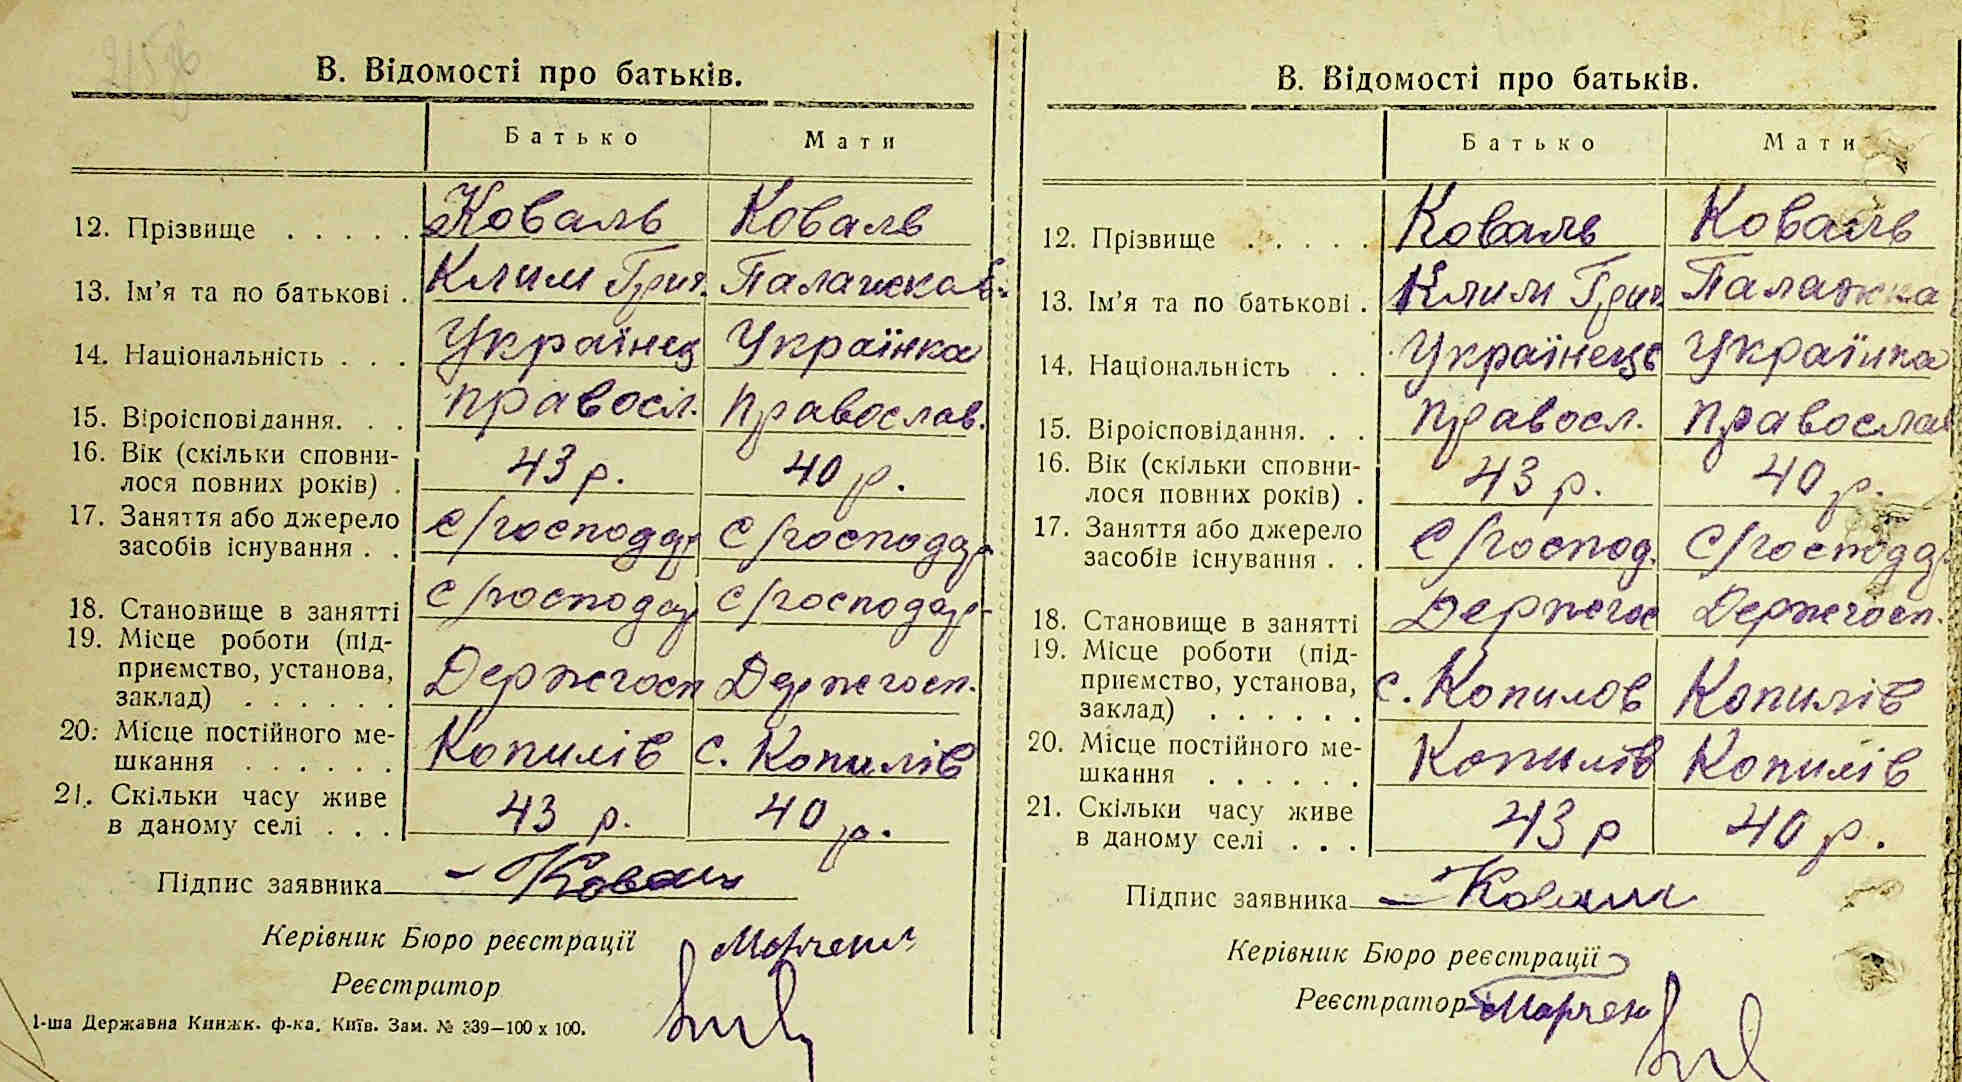 В. Відомості про батьків.
Батько Мати
12. Прізвище . . . . . Коваль Коваль
13. Ім'я та по батькові . Клим Григ. Палажка
14. Національність . . . Українец Українка
15. Віроісповідання. . . правосл. Православ.
16. Вік (скільки сповни-
лося повних років) . 43 р. 40 р.
17. Заняття або джерело
засобів існування . . С/господар С/господар
18. Становище в занятті С/господар С/господар
19. Місце роботи (під-
приємство, установа,
заклад) . . . . . . Держгосп Держгосп.
20. Місце постійного ме-
шкання . . . . . . Копилів с. Копилів
21. Скільки часу живе
в даному селі . . . 43 р. 40 р.
Підпис заявника Коваль
Керівник Бюро реєстрації
Реєстратор
1-ша Державна Книжк. ф-ка. Київ. Зам. № 339—100 х 100.
В. Відомості про батьків.
Батько Мати
12. Прізвище . . . . . Коваль Коваль
13. Ім'я та по батькові . Клим Григ Палажка
14. Національність . . Українець Українка
15. Віроісповідання. . . Правосл. Православ
16. Вік (скільки сповни-
лося повних років) . 43 р. 40 р.
17. Заняття або джерело
засобів існування . . С/господ. С/господар
18. Становище в занятті Держгос Держгосп.
19. Місце роботи (під-
приємство, установа,
заклад) . . . . . . с. Копилов Копилів
20. Місце постійного ме-
шкання . . . . . . Копилів Копилів
21. Скільки часу живе
в даному селі . . . 43 р 40 р.
Підпис заявника Коваль
Керівник Бюро реєстрації
Реєстратор